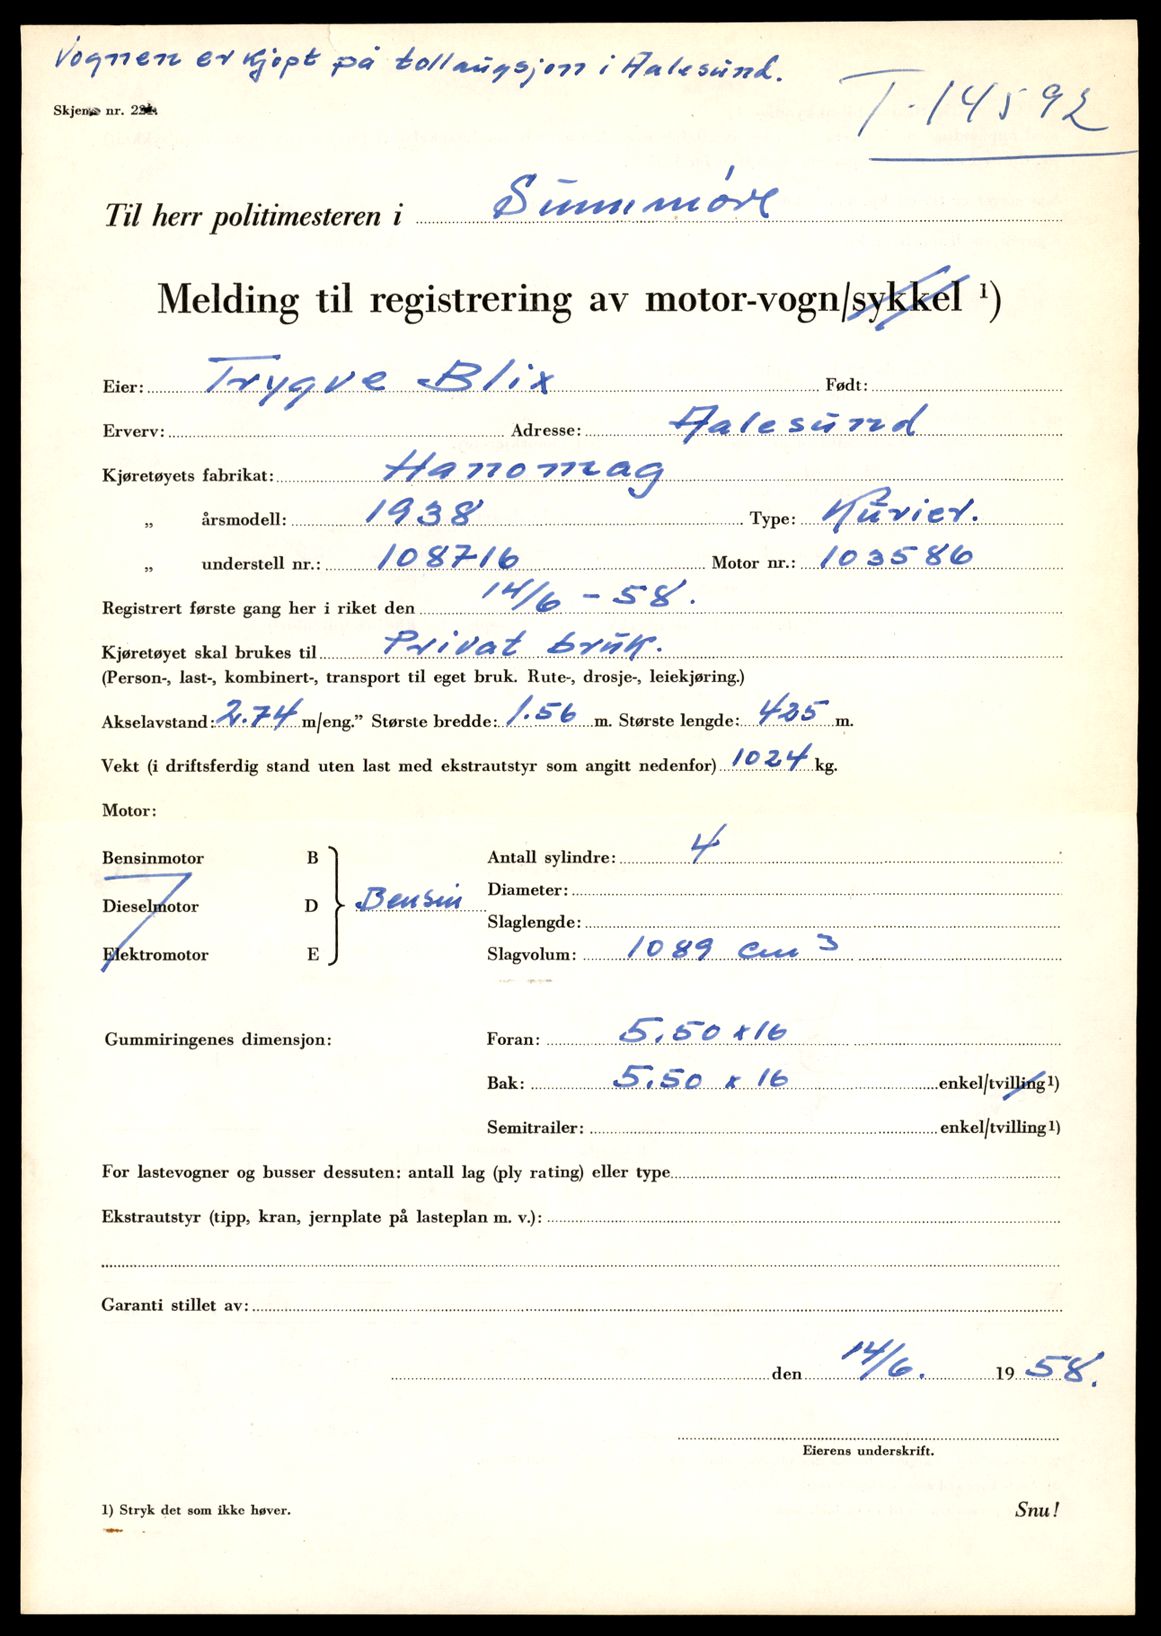 Vognen er kjøpt på tollaugsjon i Aalesund.
T-14592
Skjema nr. 221.
Til herr politimesteren i Sunnmøre
Melding til registrering av motor-vogn/sykkel ¹)
Eier: Trygve Blix Født:
Erverv: Adresse: Aalesund
Kjøretøyets fabrikat: Hanomag
„ årsmodell: 1938 Type: Kurier.
„ understell nr.: 108716 Motor nr.: 103586
Registrert første gang her i riket den 14/6 - 58.
Kjøretøyet skal brukes til Privat bruk.
(Person-, last-, kombinert-, transport til eget bruk. Rute-, drosje-, leiekjøring.)
Akselavstand: 2.74 m/eng.” Største bredde: 1.56 m. Største lengde: 435 m.
Vekt (i driftsferdig stand uten last med ekstrautstyr som angitt nedenfor) 1024 kg.
Motor:
Bensinmotor B Antall sylindre: 4
Diameter:
Dieselmotor D Bensin
Slaglengde:
Elektromotor E Slagvolum: 1089 cm 3
Gummiringenes dimensjon: Foran: 5.50 x 16
Bak: 5.50 x 16 enkel/tvilling ¹)
Semitrailer: enkel/tvilling ¹)
For lastevogner og busser dessuten: antall lag (ply rating) eller type
Ekstrautstyr (tipp, kran, jernplate på lasteplan m. v.):
Garanti stillet av:
den 14/6. 19 58.
Eierens underskrift.
1) Stryk det som ikke høver.
Snu!